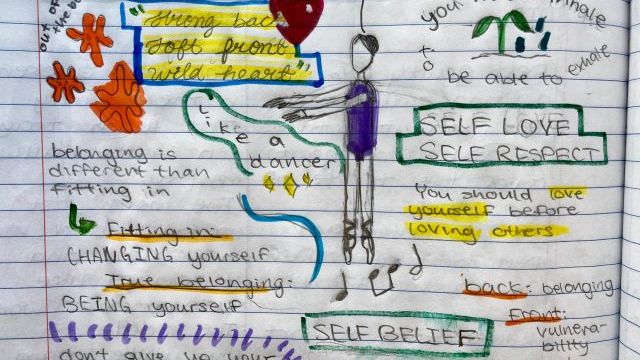 out of
the bo
"strong back
soft front
wild heart"
Like a
dancer
belonging is
different than
fitting in
Fitting in:
CHANGING yourself
True belonging:
BEING yourself
don't give up your
you
inhale
to
be able to exhale
SELF LOVE
SELF RESPECT
You should love
yourself before
loving others
back: belonging
Front:
vulnera-
bility
SELF BELIEF